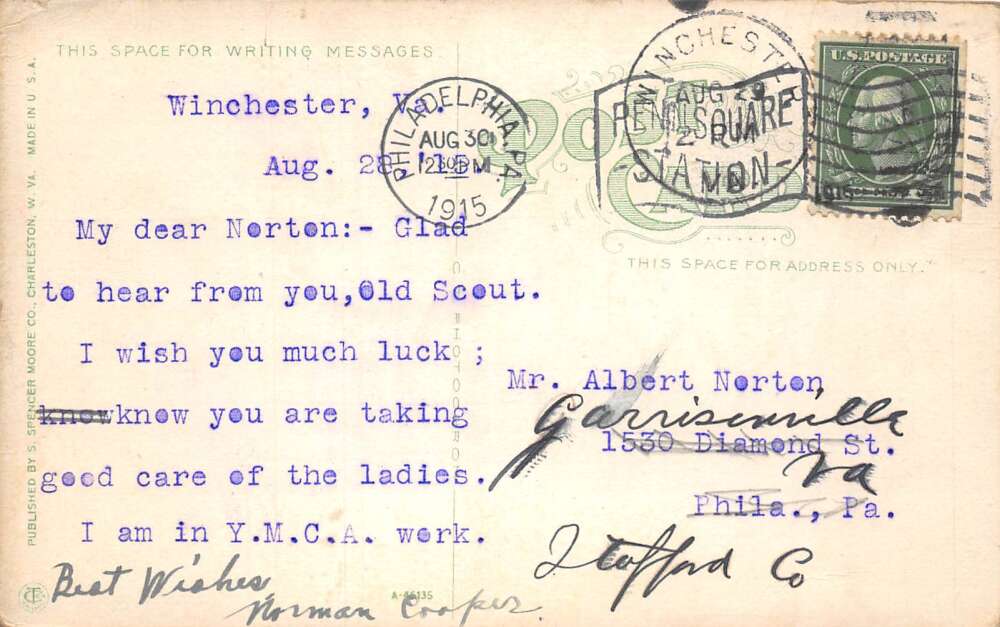 THIS SPACE FOR WRITING MESSAGES
Winchester, Va.
Aug. 28 '15.
My dear Norton:- Glad
to hear from you, Old Scout.
I wish you much luck ;
know know you are taking
good care of the ladies.
I am in Y.M.C.A. work.
Best Wishes
Norman Cooper
PUBLISHED BY S. SPENCER MOORE CO., CHARLESTON, W. VA. MADE IN U. S. A.
A-46135
PHILADELPHIA, PA.
AUG 30
12 30 PM
1915
PENN SQUARE
STATION
WINCHESTER
AUG 29
2 PM
U.S. POSTAGE
Post
THIS SPACE FOR ADDRESS ONLY.
Mr. Albert Norton
Garrisonville
1530 Diamond St.
Va
Phila., Pa.
Stafford Co